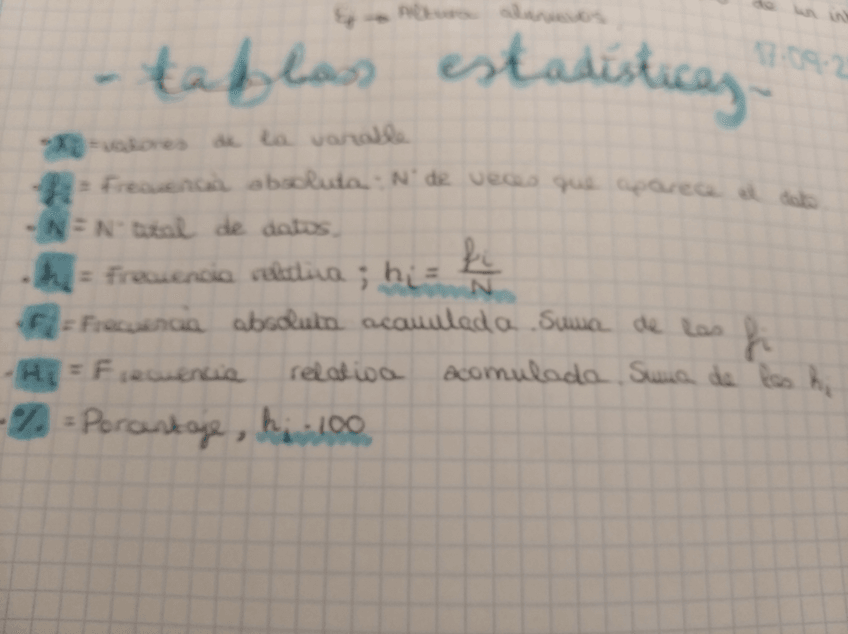 Ej → Altura alumnos. de un in
- tablas estadísticas - 17·09·2
- xi = valores de la variable
- fi = Frecuencia absoluta - Nº de veces que aparece el dato
- N = Nº total de datos.
- hi = Frecuencia relativa ; hi = fi/N
- Fi = Frecuencia absoluta acumulada. Suma de las fi
- Hi = Frecuencia relativa acomulada. Suma de las hi
- % = Porcantaje, hi · 100